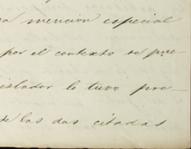 mencion especial
por el contexto se pre-
islador lo tuvo pre-
de las dos citadas